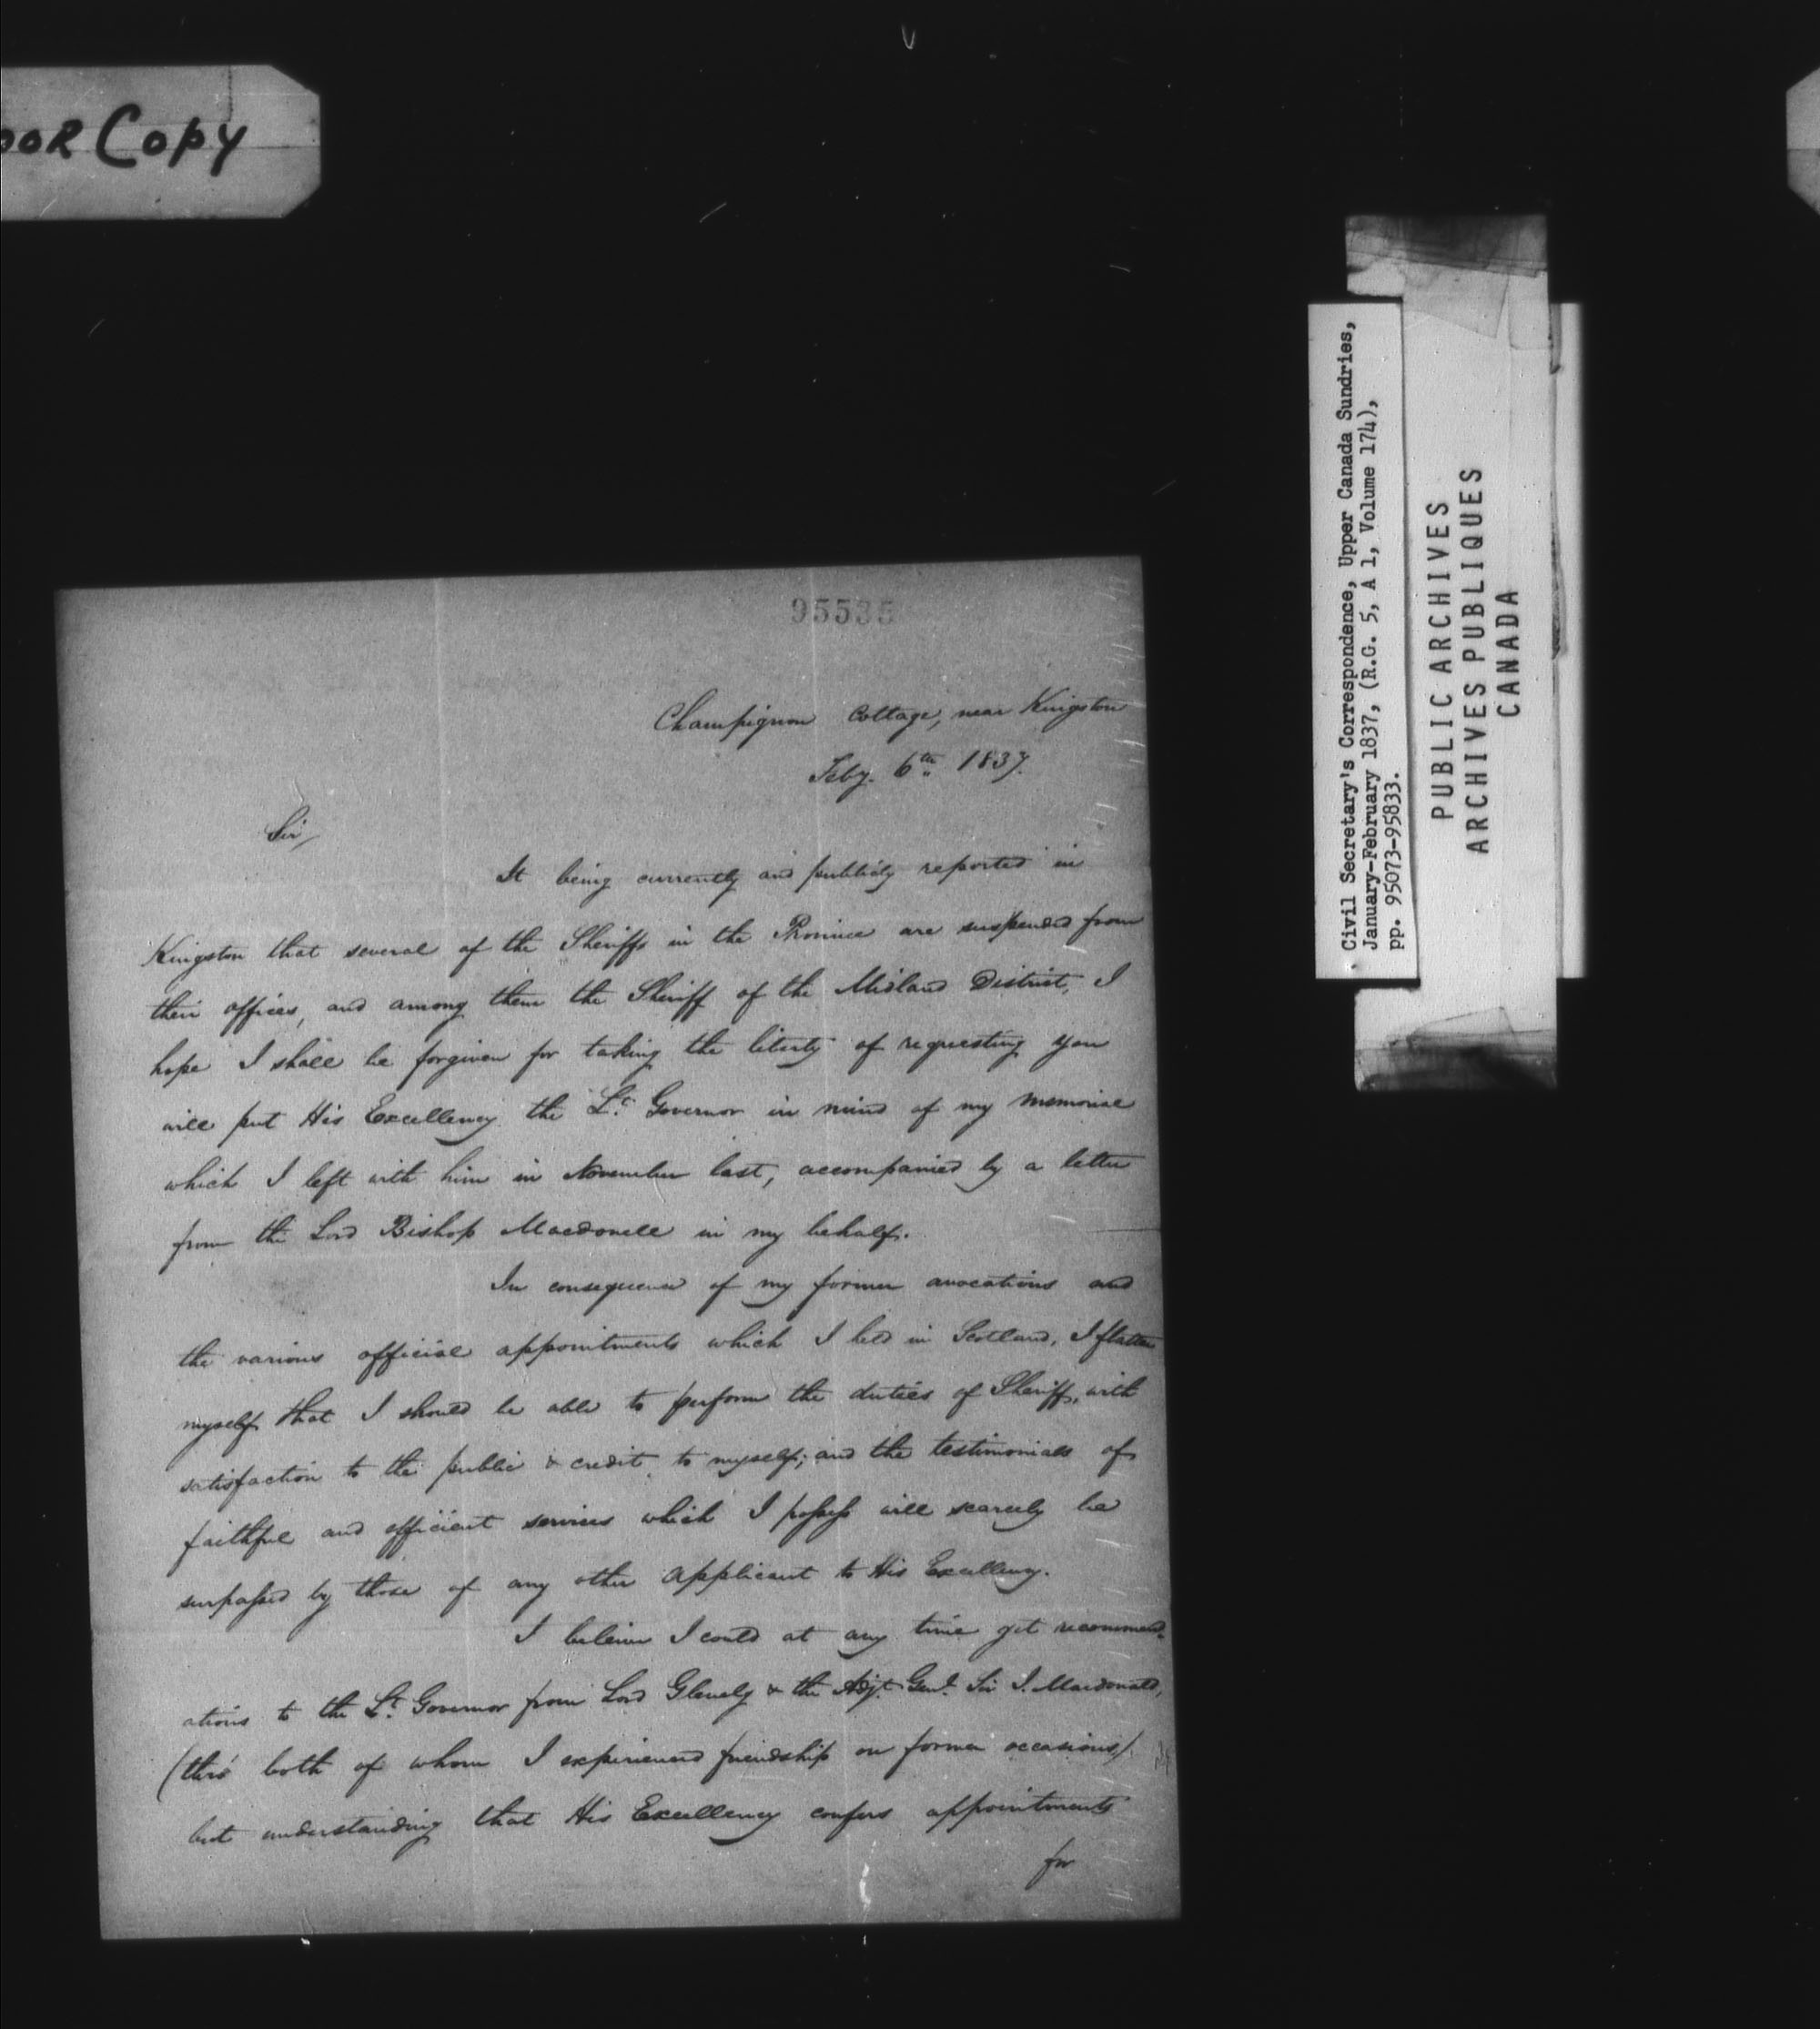 OOR COPY
95535
Champignon Cottage, near Kingston
Feby. 6th 1837.
Sir,
It being currently and publicly reported in
Kingston that several of the Sheriffs in the Province are suspended from
their offices, and among them the Sheriff of the Midland District, I
hope I shall be forgiven for taking the liberty of requesting you
will put His Excellency the Lt. Governor in mind of my memorial
which I left with him in November last, accompanied by a letter
from the Lord Bishop Macdonell in my behalf.
In consequence of my former avocations and
the various official appointments which I held in Scotland, I flatter
myself that I should be able to perform the duties of Sheriff, with
satisfaction to the public & credit to myself; and the testimonials of
faithful and efficient services which I possess will scarcely be
surpassed by those of any other applicant to His Excellency.
I believe I could at any time get recommend-
ations to the Lt. Governor from Lord Glenelg & the Adjt. Genl. Sir J. Macdonald,
(thro' both of whom I experienced friendship on former occasions)
but understanding that His Excellency confers appointments
for
Civil Secretary's Correspondence, Upper Canada Sundries,
January-February 1837, (R.G. 5, A 1, Volume 174),
pp. 95073-95833.
PUBLIC ARCHIVES
ARCHIVES PUBLIQUES
CANADA